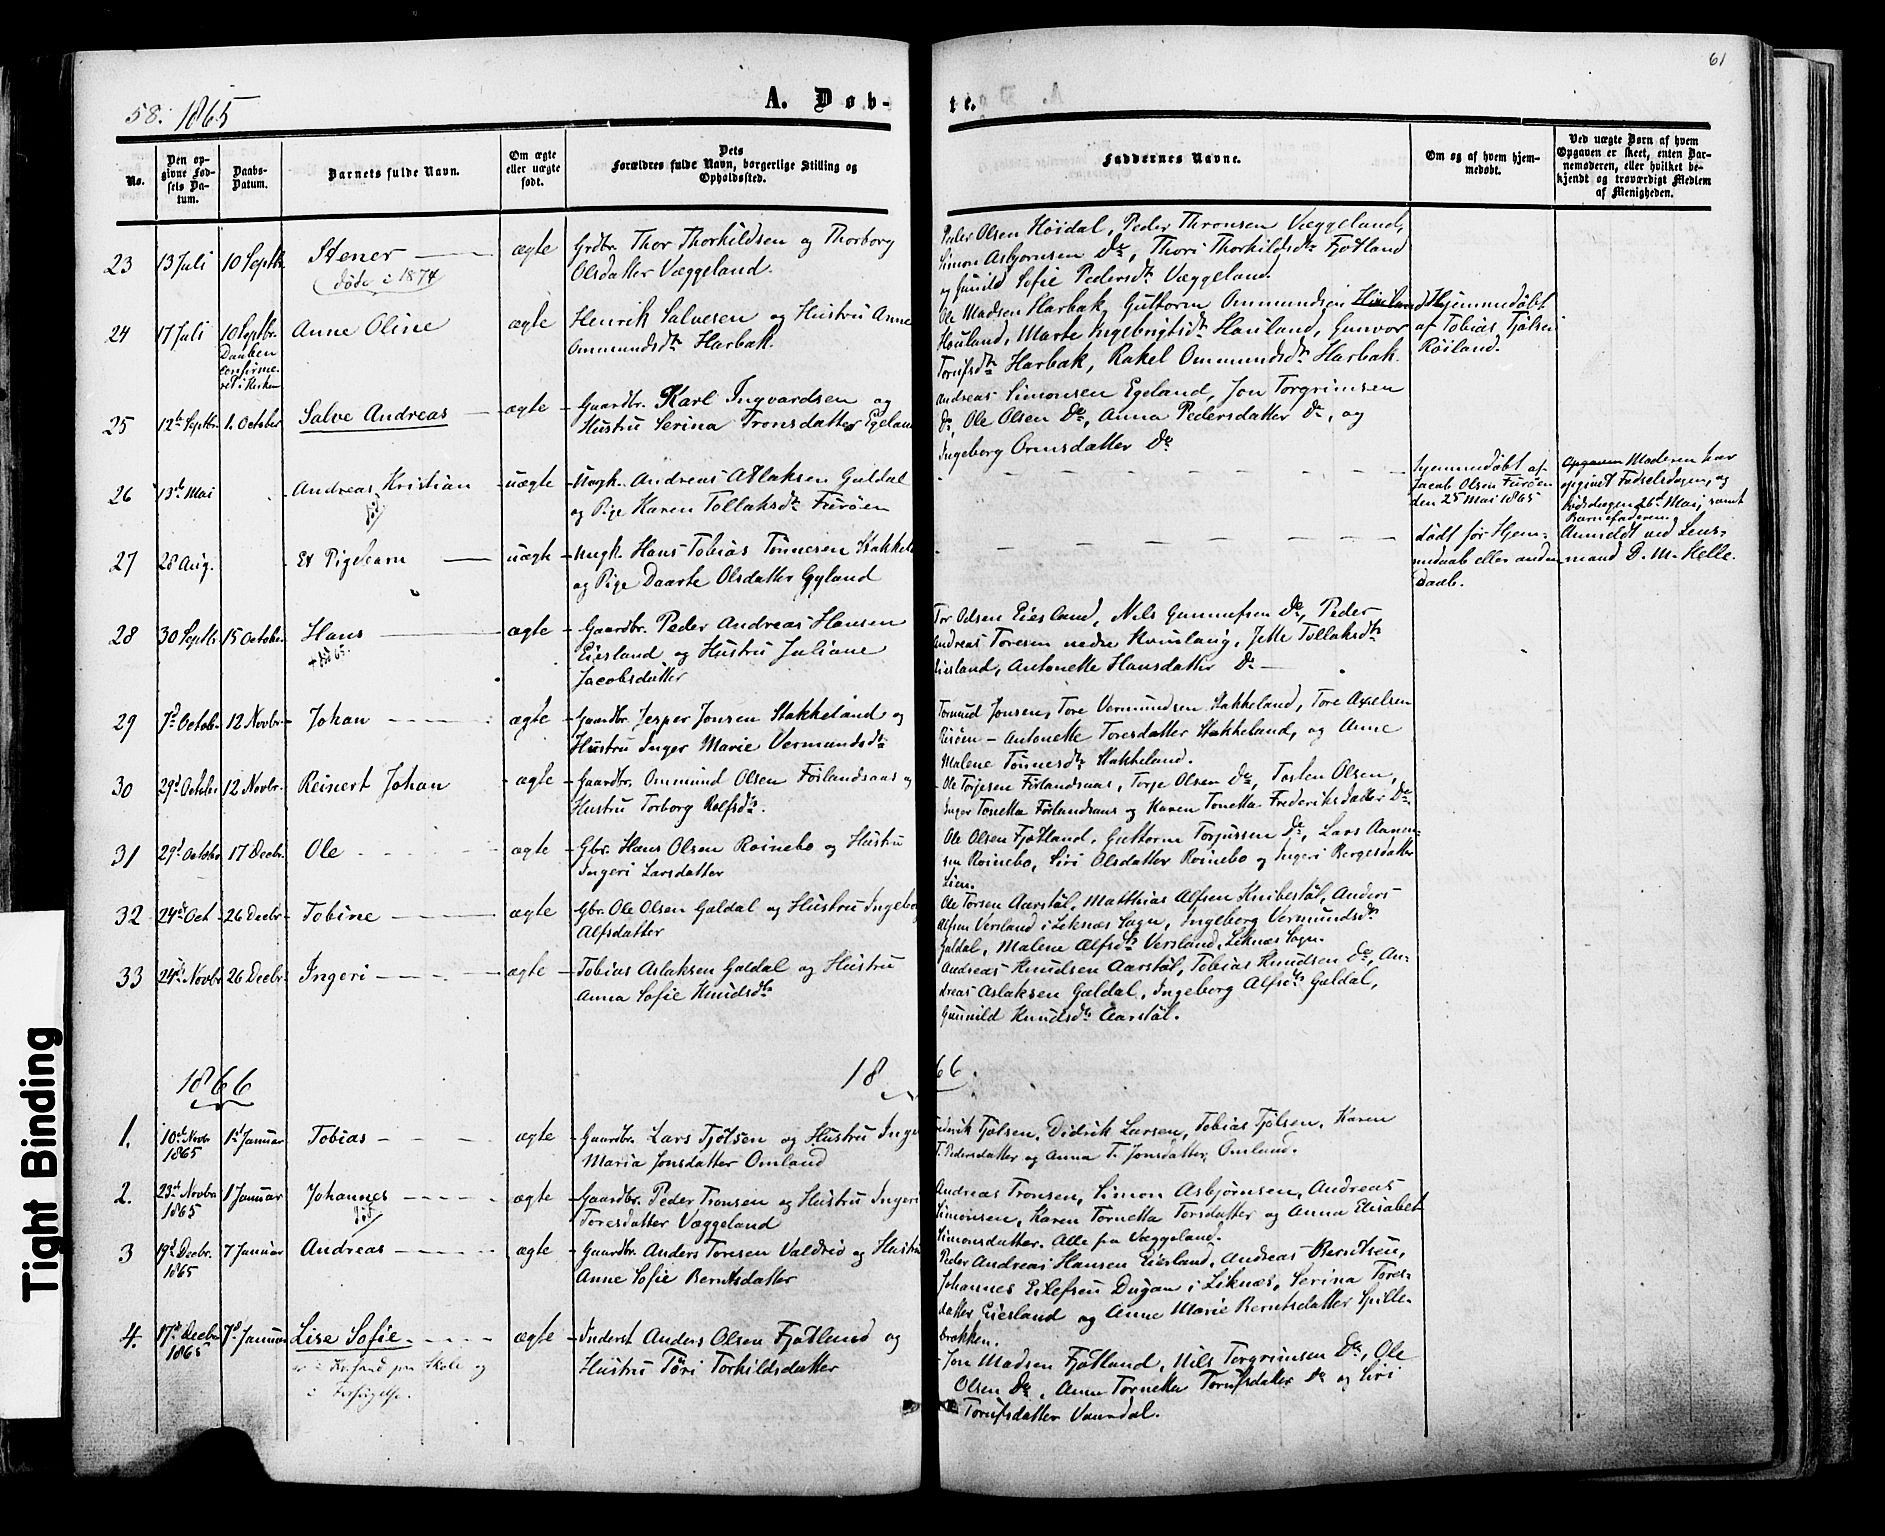 58. 1865
A. Døb-
te.
61
No.
Den op-
givne Fød-
sels Da-
tum.
Daabs-
Datum.
Barnets fulde Navn.
Om ægte
eller uægte
født.
Dets
Forældres fulde Navn, borgerlige Stilling og
Opholdssted.
Faddernes Navne.
Om og af hvem hjem-
medøbt.
Ved uægte Børn af hvem
Opgaven er skeet, enten Bar-
nemoderen, eller hvilket be-
kjendt og troværdigt Medlem
af Menigheden.
23 13 Juli 10 Septb. Stener ægte Grdbr. Thor Thorkildsen og Thorborg
døde i 1874 Olsdatter Væggeland.
Peder Olsen Høidal, Peder Thronsen Væggeland,
Simon Asbjørnsen Do, Thori Thorkildsdtr Fjotland
og Gunild Sofie Pedersdtr Væggeland.
24 17 Juli 10 Septbr. Anne Oline ægte Henrik Salvesen og Hustru Anne
Daaben
confirme-
ret i Kirken
Ommundsdtr Harbak.
Ole Madsen Harbak, Guttorm Ommundsen
Houland, Marte Ingebrigtsdtr Houland, Gunvor
Torufsdtr Harbak, Rakel Ommundsdtr Harbak.
Hjemmedøbt
af Tobias Tjølsen
Røiland.
25 12te Septbr. 1. October Salve Andreas ægte Gaardbr. Karl Ingvardsen og
Hustru Serina Tronsdatter Egeland
Andreas Simonsen Egeland, Jon Torgrimsen
Do, Ole Olsen Do, Anna Pedersdatter Do, og
Ingeborg Ormsdatter Do
26 13de Mai Andreas Kristian uægte Ungk. Andreas Atlaksen Galdal
død og Pige Karen Tollaksdtr Furøen
hjemmedøbt af
Jacob Olsen Furøen
den 25 Mai 1865
Moderen har
opgivet Fødselsdagen, og
Dødsdagen 26d Mai, samt
Barnefaderen,
27 28 Aug. Et Pigebarn uægte Ungk. Hans Tobias Tønnesen Stakkel
og Pige Daarte Olsdatter Gyland
dødt før Hjem-
medaab eller anden
Daab.
Anmeldt ved Lens-
mand D. M. Helle.
28 30 Septb. 15 October Hans ægte Gaardbr. Peder Andreas Hansen
Eiesland og Hustru Juliane
Jacobsdatter
Tor Olsen Eiesland, Nils Gunnufsen Do, Peder
Andreas Toresen nedre Kvinlaug, Jette Tollaksdtr
Eiesland, Antonette Hansdatter Do
29 7d Octob. 12 Novbr. Johan ægte Gaardbr. Jesper Jonsen Stakkeland og
Hustru Inger Marie Vermundsdtr
Tormud Jonsen, Tore Vermundsen Stakkeland, Tore Axelsen
Risøen – Antonette Toresdatter Stakkeland, og Anne
Malene Tønnesdtr Stakkeland.
30 29d Octobr 12 Novbr. Reinert Johan ægte Gaardbr. Ommund Olsen Førlandsaas og
Hustru Torborg Rolfsdtr.
Ole Torjesen Førlandsaas, Torje Olsen Do, Tosten Olsen,
Inger Tonetta Førlandsaas og Karen Tonetta Frederiksdatter Do.
31 29d October 17 Decbr. Ole ægte Gbr. Hans Olsen Roinebo og Hustru
Ingeri Larsdatter
Ole Olsen Fjotland, Guttorm Torjussen Do, Lars Aanen-
sen Roinebo, Siri Olsdatter Roinebo og Ingeri Bergesdatter
Lien.
32 24de Oct 26 Decbr. Tobine ægte Gbr. Ole Olsen Galdal og Hustru Ingeborg
Alfsdatter
Ole Torsen Aarstøl, Matthias Alfsen Knibestøl, Anders
Alfsen Versland i Leknæs Sogn, Ingeborg Vermundsdtr
Galdal, Malene Alfsdtr Versland, Leknæs Sogn.
33 24de Novbr 26 Decbr. Ingeri ægte Tobias Aslaksen Galdal og Hustru
Anna Sofie Knudsdtr
Andreas Knudsen Aarstøl, Tobias Knudsen Do, An-
dreas Aslaksen Galdal, Ingeborg Alfsdtr Galdal,
Gunnild Knudsdtr Aarstøl.
1866 1866.
1. 10de Novbr 1865 1d Januar Tobias ægte Gaardbr. Lars Tjølsen og Hustru Inger
Maria Jonsdatter Omland
Fredrik Tjølsen, Didrik Larsen, Tobias Tjølsen, Karen
T. Pedersdatter og Anna T. Jonsdatter, Omland.
2. 23de Novbr 1865 1 Januar Johannes ægte Gaardbr. Peder Tronsen og Hustru Ingeri
død Toresdatter Væggeland
Andreas Tronsen, Simon Asbjørnsen, Andreas
Simonsen, Karen Tornetta Torsdatter og Anna Elisabet
Simonsdatter. Alle fra Væggeland.
3 19d Decbr. 1865 7 Januar Andreas ægte Gaardbr. Anders Toresen Valdrid og Hustru
Anne Sofie Berntsdatter
Peder Andreas Hansen Eiesland, Andreas Berntsen,
Johannes Eilefsen Dugan i Leknæs, Serina Tores-
datter Eiesland og Anne Marie Berntsdatter Spille-
brokken.
4. 17d Decbr 1865 7d Januar Lise Sofie ægte Inderst Anders Olsen Fjotland og
er i Krsand paa Skole og
i Forsørgelse.
Hustru Tøri Torkildsdatter
Jon Madsen Fjotland, Nils Torgrimsen Do, Ole
Olsen Do, Anna Tornetta Torufsdatter Do og Siri
Torufsdatter Vaundal.
Tight Binding